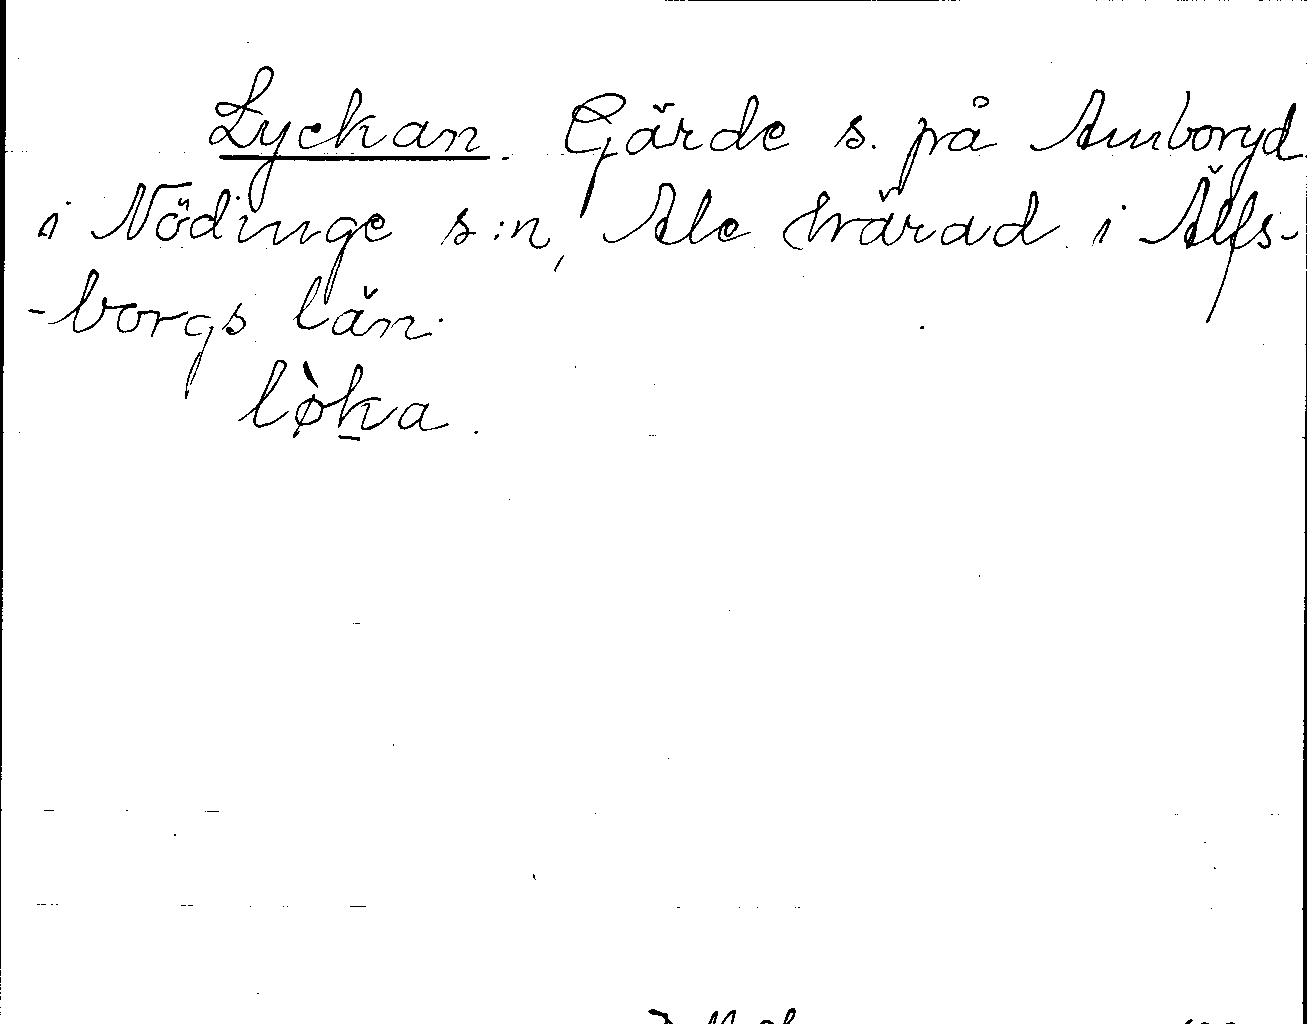 Lyckan. Gärde s. på Amboryd
i Nödinge s:n, Ale härad i Älfs-
-borgs län.
lø̀ka.